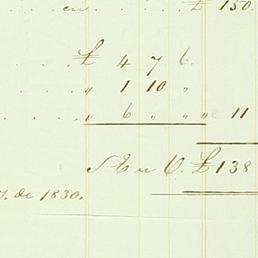 en . . . . £ 150.
. . . . £ 4 7 6
. . . . „ 1 10 „
. . . . „ 6 „ „ „ 11
S. E. u O. £ 138
de 1830.